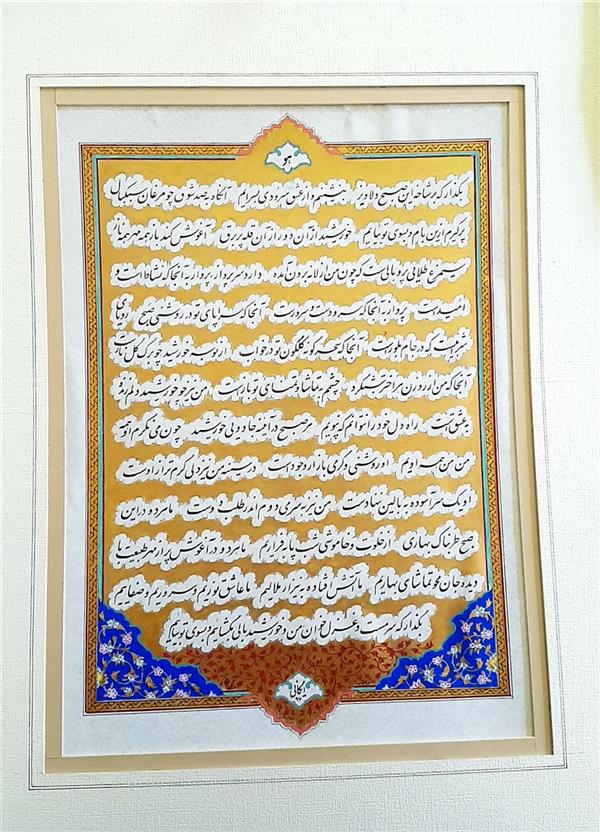 هو
بگذار که بر شاخه این صبح دلاویز بنشینم و از عشق سرودی بسرایم آنگاه به صد شوق چو مرغان سبکبال
پر گیرم از این بام و بسوی تو بیایم خورشید از آن دور از آن قله پر برف آغوش کند باز همه مهر همه ناز
سیمرغ طلایی پر و بالی ست که چون من از لانه برون آمده دارد سر پرواز پرواز به آنجا که نشاط است و
امید است پرواز به آنجا که سرود است و سرور است آنجا که سراپای تو در روشنی صبح رویای
شرابیست که در جام بلور است آنجا که سحر گونه گلگون تو در خواب از بوسه خورشید چو برگ گل ناز است
آنجا که من از روزن هر اختر شبگرد چشمم به تماشا و تمنای تو باز است من نیز چو خورشید دلم زنده
به عشق است راه دل خود را نتوانم که نپویم هر صبح در آئینه جادویی خورشید چون می نگرم او همه
من من همه اویم او روشنی و گرمی بازار وجود است در سینه من نیز دلی گرم تر از اوست
او یک سر آسوده به بالین ننهادست من نیز به سر می دوم اندر طلب دوست ما هر دو در این
صبح طربناک بهاری از خلوت و خاموشی شب پا به فراریم ما هر دو در آغوش پر از مهر طبیعت با
دیده جان محو تماشای بهاریم ما آتش افتاده به نیزار ملالیم ما عاشق نوریم و سروریم و صفاییم
بگذار که سرمست و غزل خوان من و خورشید بالی بگشاییم و بسوی تو بیاییم